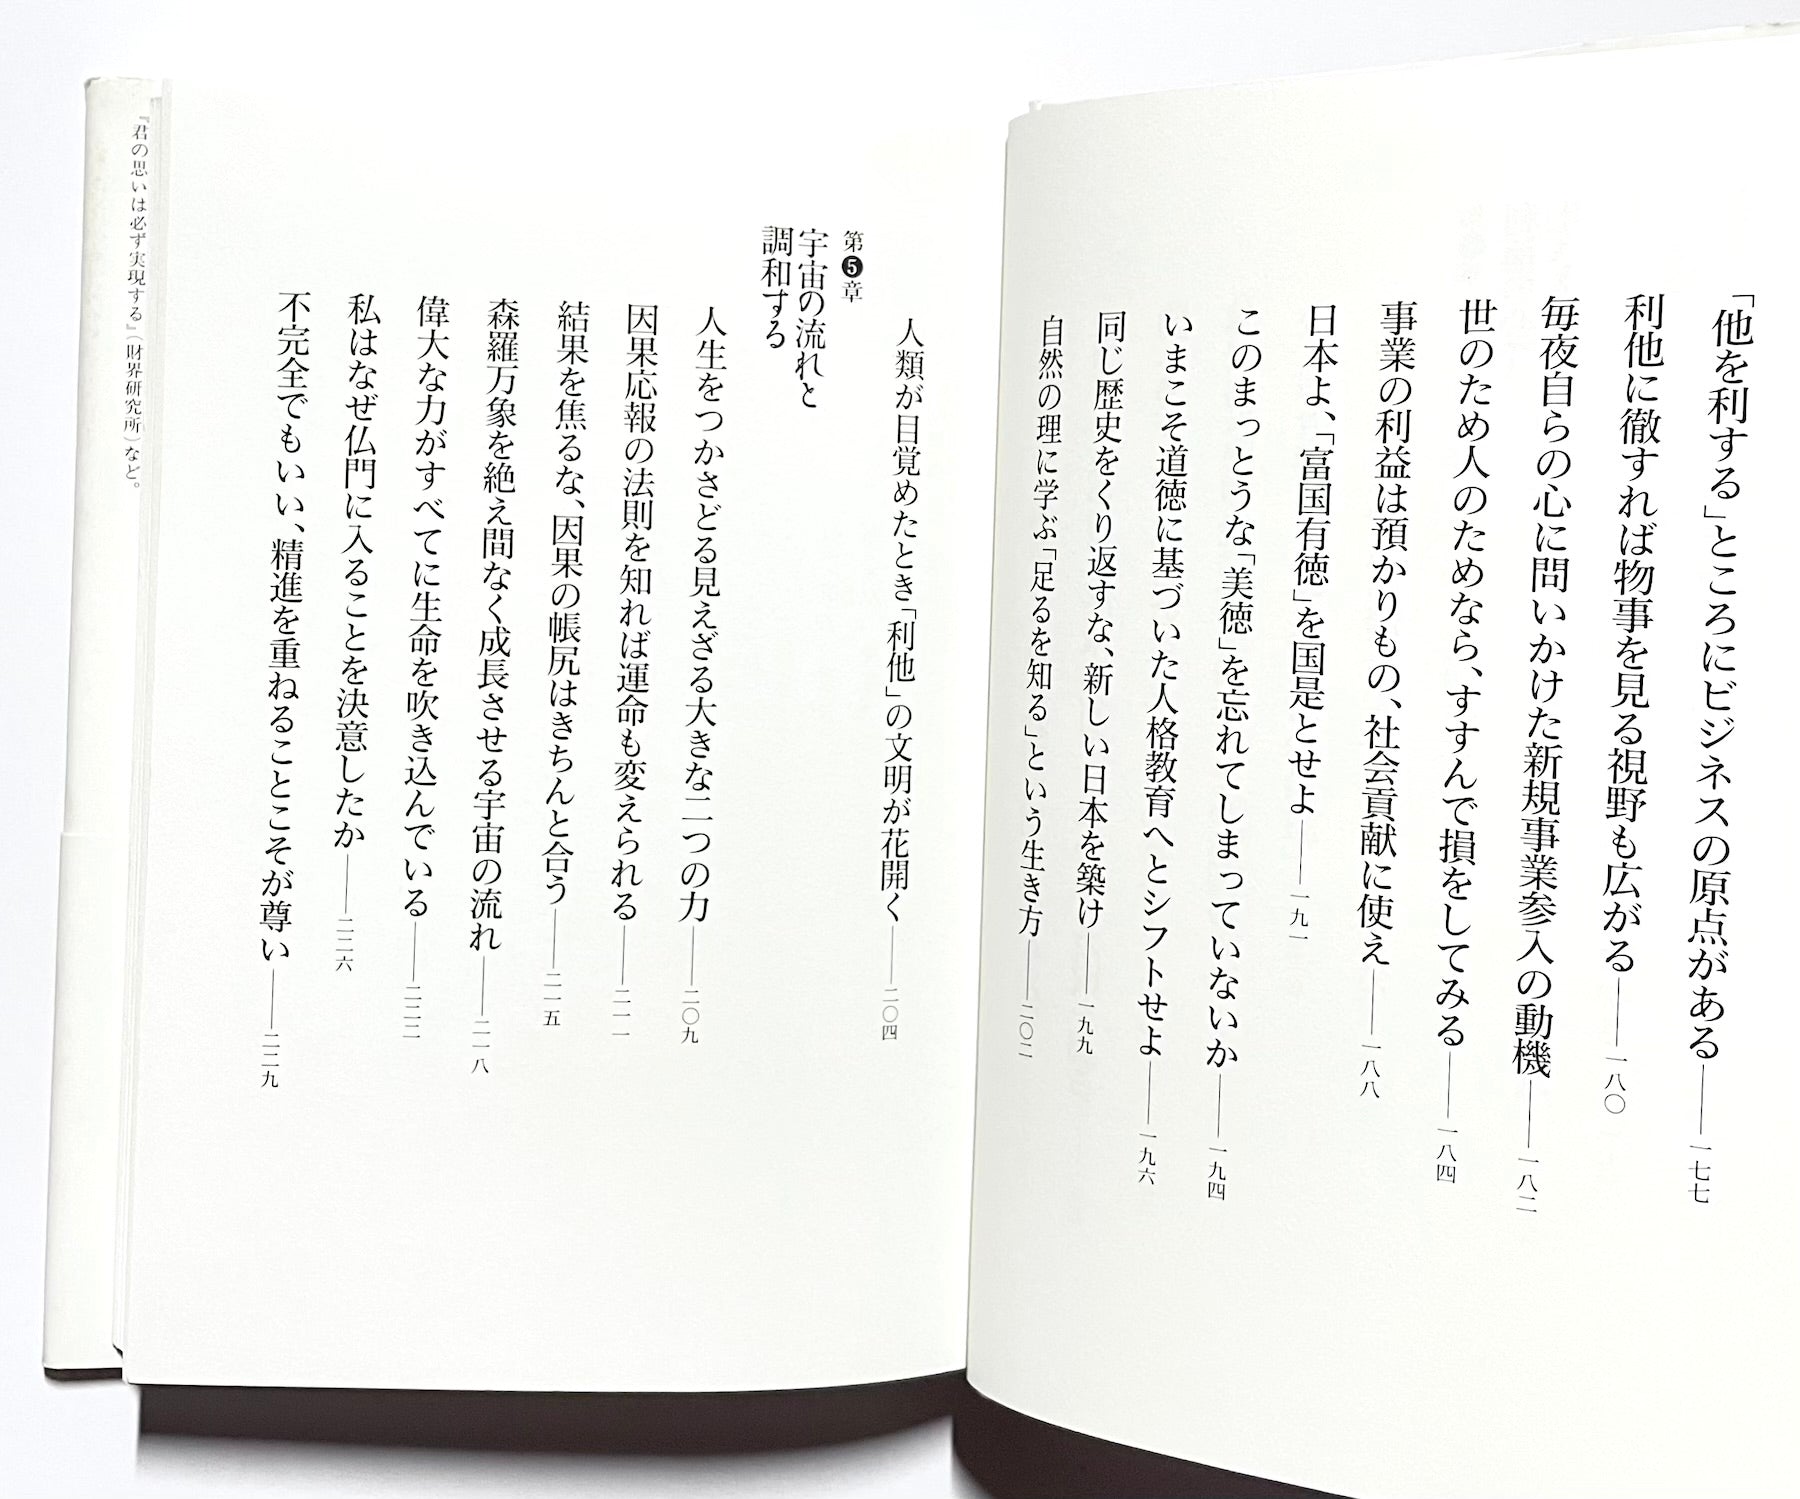 「他を利する」ところにビジネスの原点がある――一七七
利他に徹すれば物事を見る視野も広がる――一八〇
毎夜自らの心に問いかけた新規事業参入の動機――一八二
世のため人のためなら、すすんで損をしてみる――一八四
事業の利益は預かりもの、社会貢献に使え――一八八
日本よ、「富国有徳」を国是とせよ――一九一
このまっとうな「美徳」を忘れてしまっていないか――一九四
いまこそ道徳に基づいた人格教育へとシフトせよ――一九六
同じ歴史をくり返すな、新しい日本を築け――一九九
自然の理に学ぶ「足るを知る」という生き方――二〇二
人類が目覚めたとき「利他」の文明が花開く――二〇四
第❺章
宇宙の流れと
調和する
人生をつかさどる見えざる大きな二つの力――二〇九
因果応報の法則を知れば運命も変えられる――二一一
結果を焦るな、因果の帳尻はきちんと合う――二一五
森羅万象を絶え間なく成長させる宇宙の流れ――二一八
偉大な力がすべてに生命を吹き込んでいる――二二二
私はなぜ仏門に入ることを決意したか――二二六
不完全でもいい、精進を重ねることこそが尊い――二二九
『君の思いは必ず実現する』（財界研究所）など。